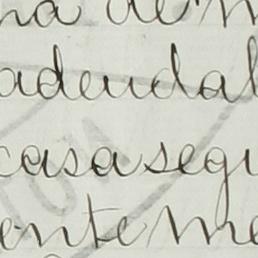 na de m
adeudal
casa segu
ente me